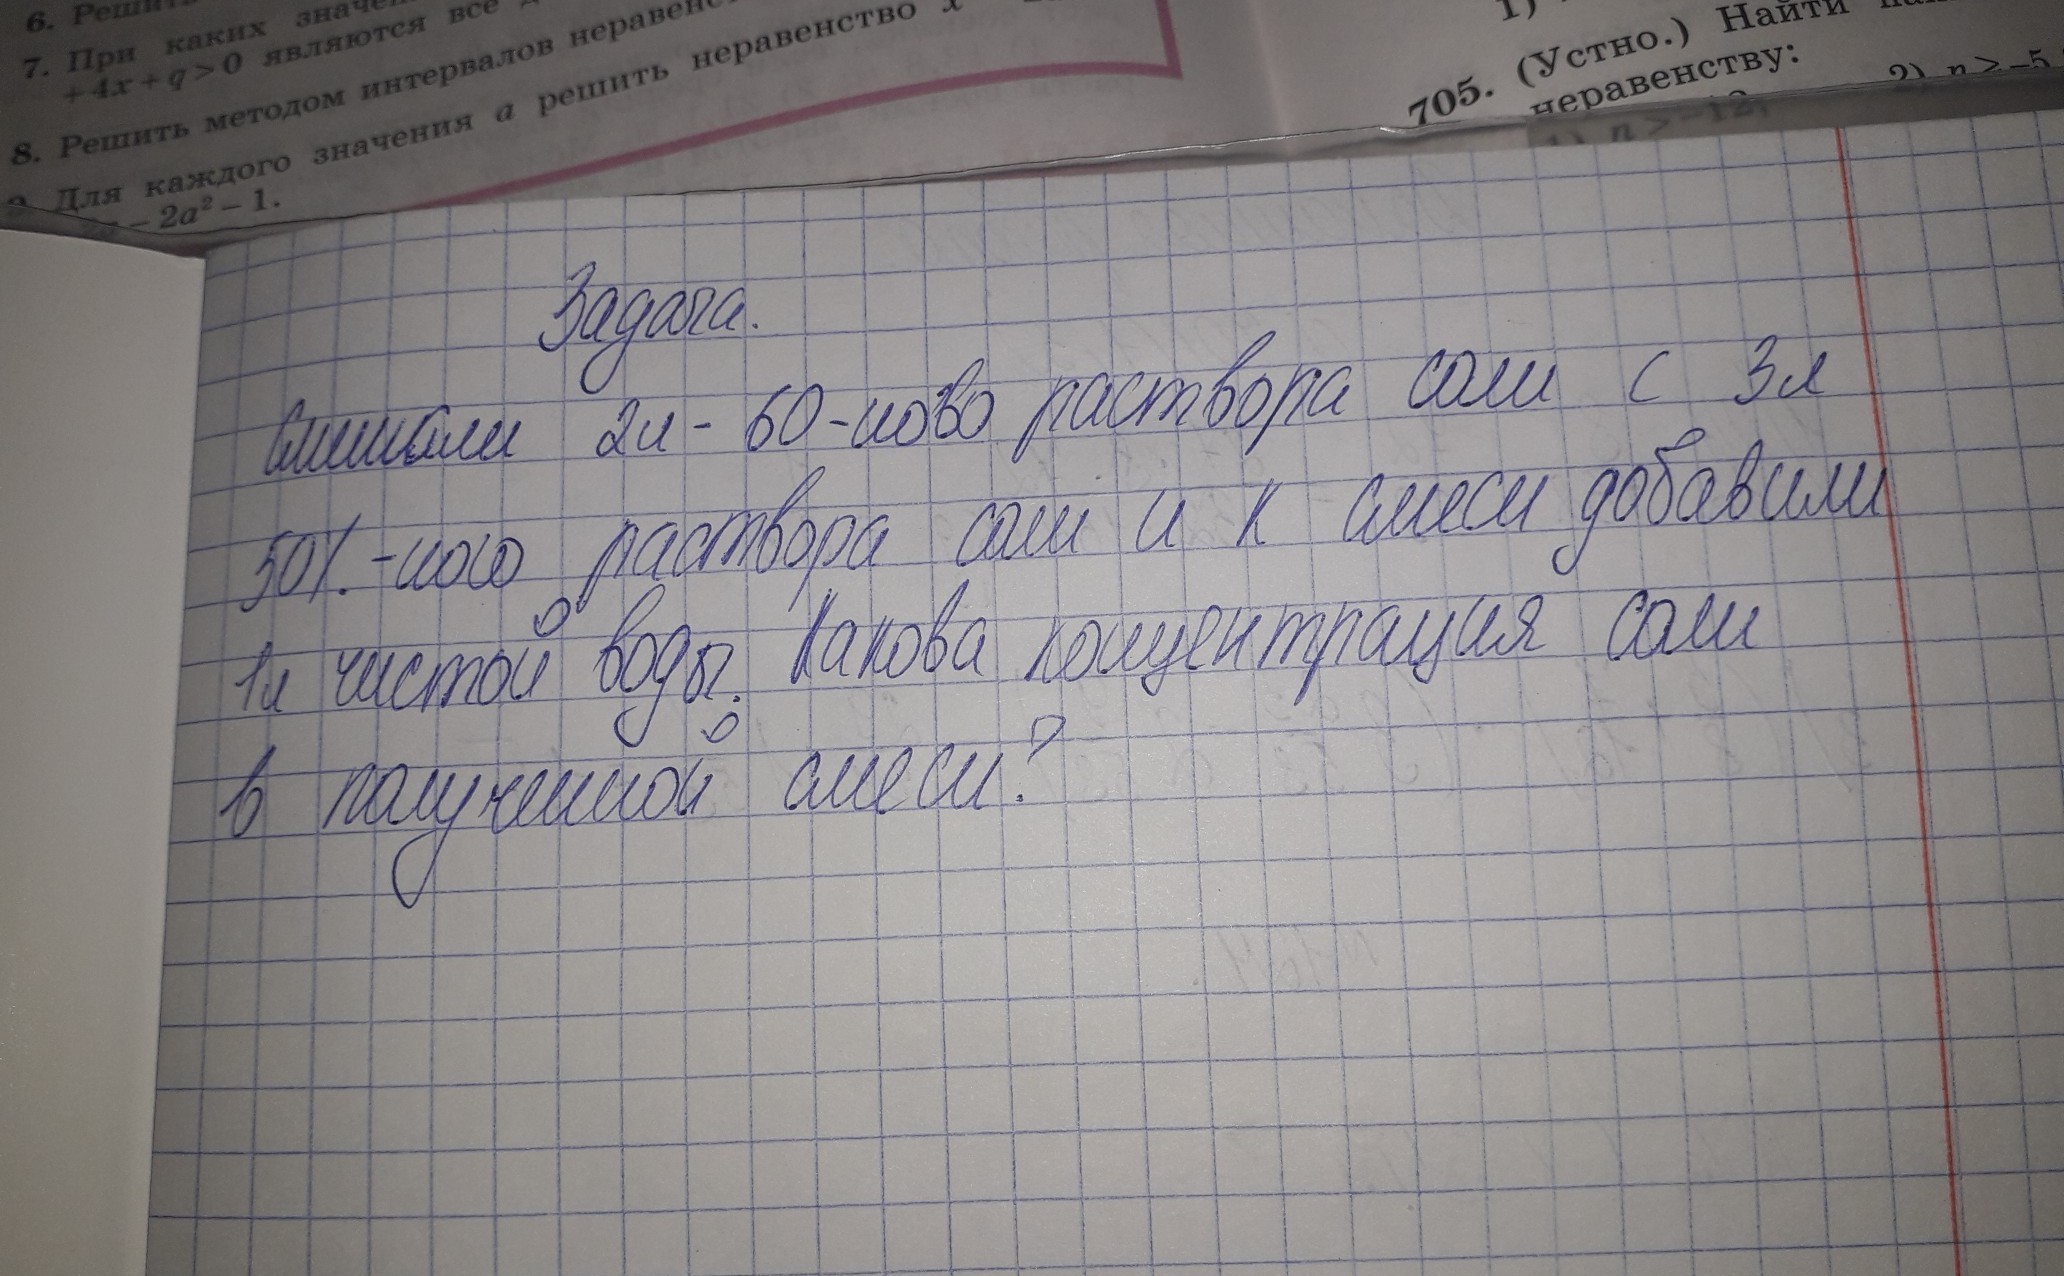 6. Решить
7. При каких
+4x+q>0 являются все
8. Решить методом интервалов
Для каждого значения a решить неравенство x
– 2a² – 1.
1)
705. (Устно.) Найти
неравенству:
1) n > –12; 2) n ≥ –5
Задача.
Смешали 2л - 60-ново раствора соли с 3л
50%-ного раствора соли и к смеси добавили
1л чистой воды. Какова концентрация соли
в полученной смеси?